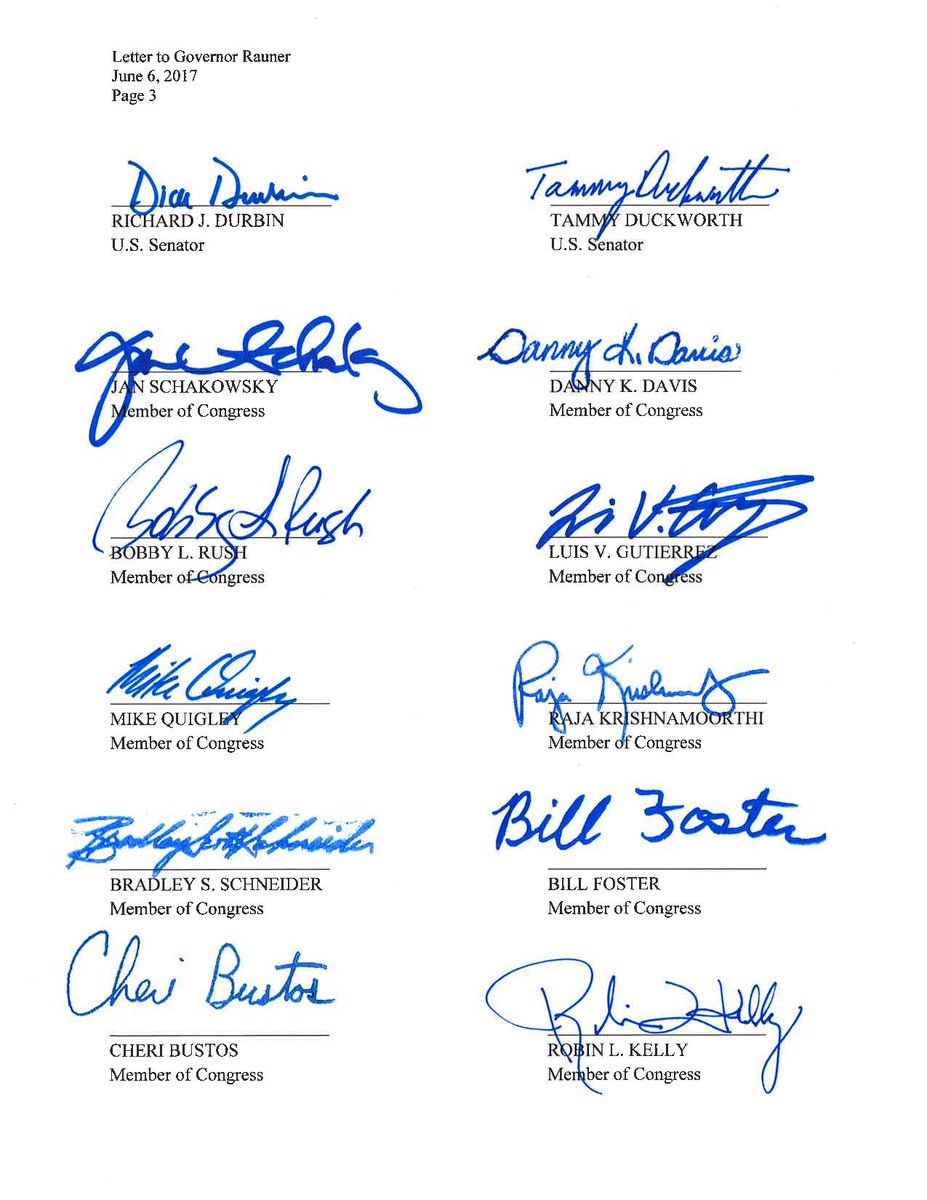 Letter to Governor Rauner
June 6, 2017
Page 3
Dick Durbin
RICHARD J. DURBIN
U.S. Senator
Tammy Duckworth
TAMMY DUCKWORTH
U.S. Senator
Jan Schakowsky
JAN SCHAKOWSKY
Member of Congress
Danny K. Davis
DANNY K. DAVIS
Member of Congress
Bobby L Rush
BOBBY L. RUSH
Member of Congress
LUIS V. GUTIERREZ
Member of Congress
Mike Quigley
MIKE QUIGLEY
Member of Congress
Raja Krishnamoorthi
RAJA KRISHNAMOORTHI
Member of Congress
Bradley Scott Schneider
BRADLEY S. SCHNEIDER
Member of Congress
Bill Foster
BILL FOSTER
Member of Congress
Cheri Bustos
CHERI BUSTOS
Member of Congress
Robin L Kelly
ROBIN L. KELLY
Member of Congress